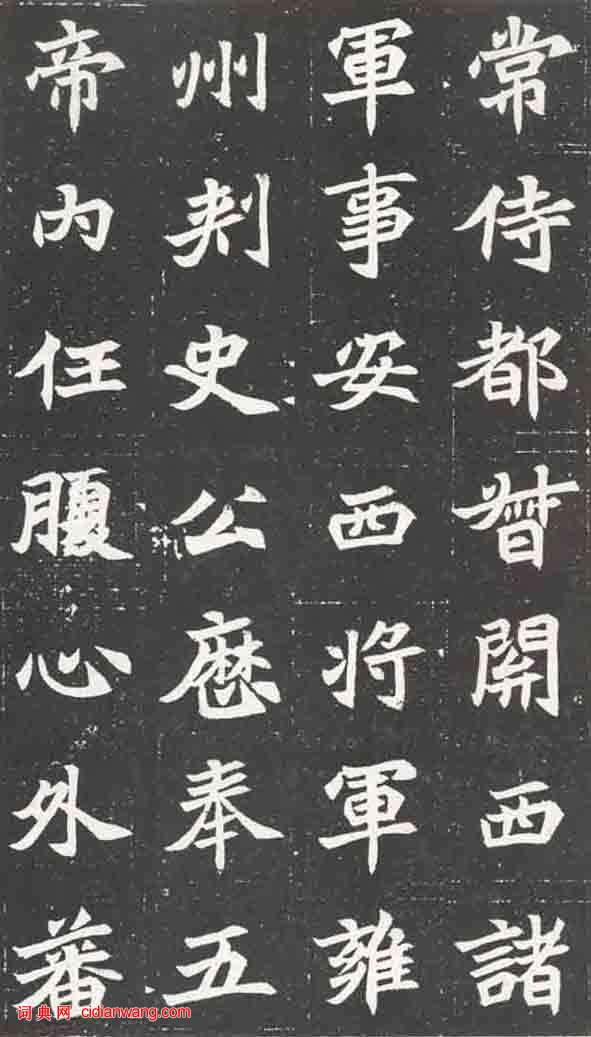 常侍都督開西諸
軍事安西将軍雍
州刾史公歷奉五
帝内任腹心外蕃
词典网 cidianwang.com